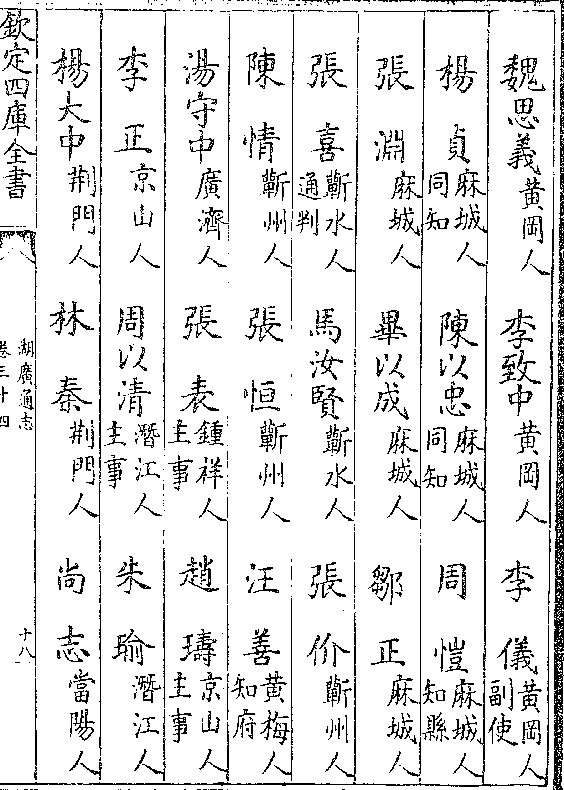 魏思義黄岡人 李致中黄岡人 李儀黄岡人副使
楊貞麻城人同知 陳以忠麻城人同知 周愷麻城人知縣
張淵麻城人 畢以成麻城人 鄒正麻城人
張喜蘄水人通判 馬汝賢蘄水人 張价蘄州人
陳情蘄州人 張恒蘄州人 汪善黄梅人知府
湯守中廣濟人 張表鍾祥人主事 趙璹京山人主事
李正京山人 周以清潛江人主事 朱瑜潛江人
楊大中荆門人 林秦荆門人 尚志當陽人
欽定四庫全書 湖廣通志卷三十四 十八